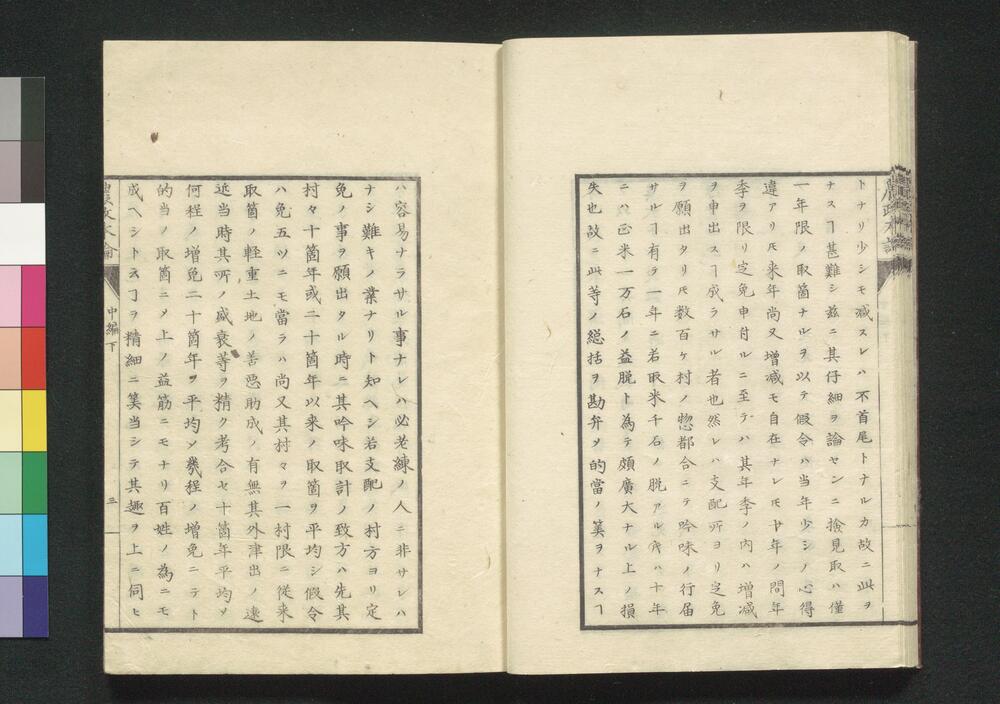 トナリ少シモ減スレハ不首尾トナルカ故ニ此ヲ
ナスヿ甚難シ玆ニ其仔細ヲ論センニ捨見取ハ僅
一年限ノ取箇ナルヲ以テ假令ハ当年少シノ心得
違アリ𪜈来年尚又増減モ自在ナレ𪜈廿年ノ間年
季ヲ限リ定免申付ルニ至テハ其年季ノ内ハ増減
ヲ申出スヿ成ラサル者也然レハ支配所ヨリ定免
ヲ願出タリ𪜈数百ケ村ノ惣都合ニテ吟味ノ行届
サルヿ有ラ一年ニ若取米千石ノ脱アル寸ハ十年
ニハ正米一万石ノ益脱ト為テ頗廣大ナル上ノ損
失也故ニ此等ノ総括ヲ勘弁〆的當ノ筭ヲナスヿ
ハ容易ナラサル事ナレハ必老練ノ人ニ非サレハ
ナシ難キノ業ナリト知ヘシ若支配ノ村方ヨリ定
免ノ事ヲ願出タル時ニ其吟味取計ノ致方ハ先其
村々十箇年或二十箇年以来ノ取箇ヲ平均シ假令
ハ免五ツニモ當ラハ尚又其村々ヲ一村限ニ従来
取箇ノ軽重土地ノ善悪助成ノ有無其外津出ノ遠
近当時其所ノ盛衰等ヲ精ク考合セ十箇年平均〆
何程ノ増免二十箇年ヲ平均〆幾程ノ増免ニテト
的当ノ取箇ニ〆上ノ益筋ニモナリ百姓ノ為ニモ
成ヘシト云ヿヲ精細ニ筭当シテ其趣ヲ上ニ伺ヒ
農政本論
中編下
三